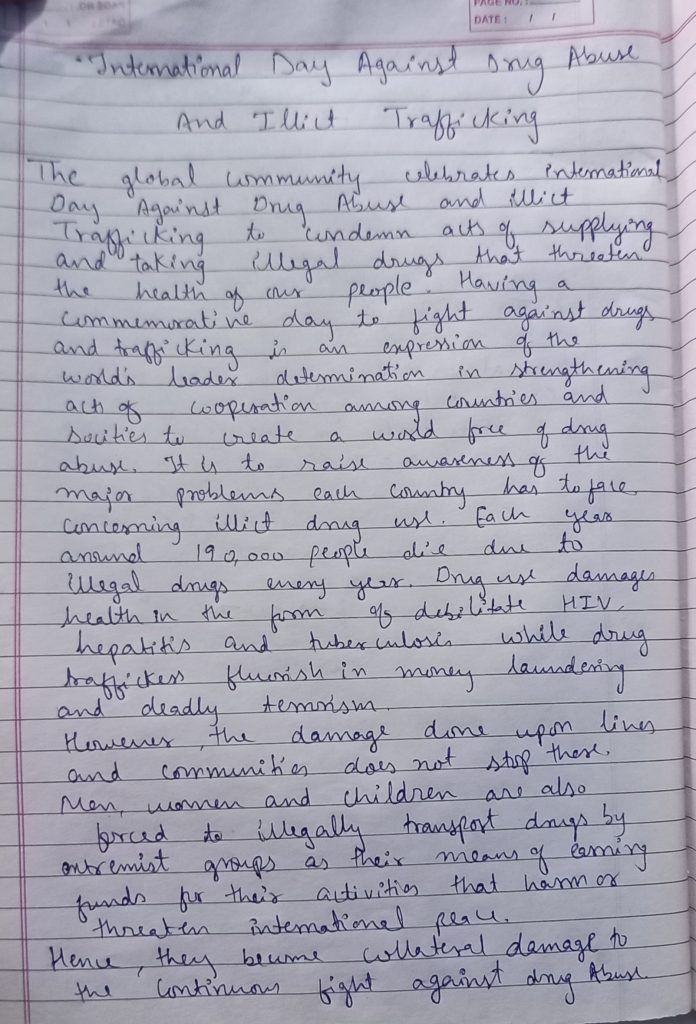 PAGE NO.:
DATE: / /
"International Day Against Drug Abuse
And Illict Trafficking
The global community celebrates international
Day Against Drug Abuse and illict
Trafficking to condemn acts of supplying
and taking illegal drugs that threaten
the health of our people. Having a
commemorative day to fight against drugs
and trafficking is an expression of the
world's leader determination in strengthening
acts of cooperation among countries and
socities to create a world free of drug
abuse. It is to raise awareness of the
major problems each country has to face
concerning illict drug use. Each year
around 190,000 people die due to
illegal drugs every year. Drug use damages
health in the form of debilitate HIV,
hepatitis and tuberculosis while drug
traffickers fluorish in money laundering
and deadly terrorism.
However, the damage done upon lives
and communities does not stop there.
Men, women and children are also
forced to illegally transport drugs by
extremist groups as their means of earning
funds for their activities that harm or
threaten international peace.
Hence, they become collateral damage to
the continuous fight against drug Abuse